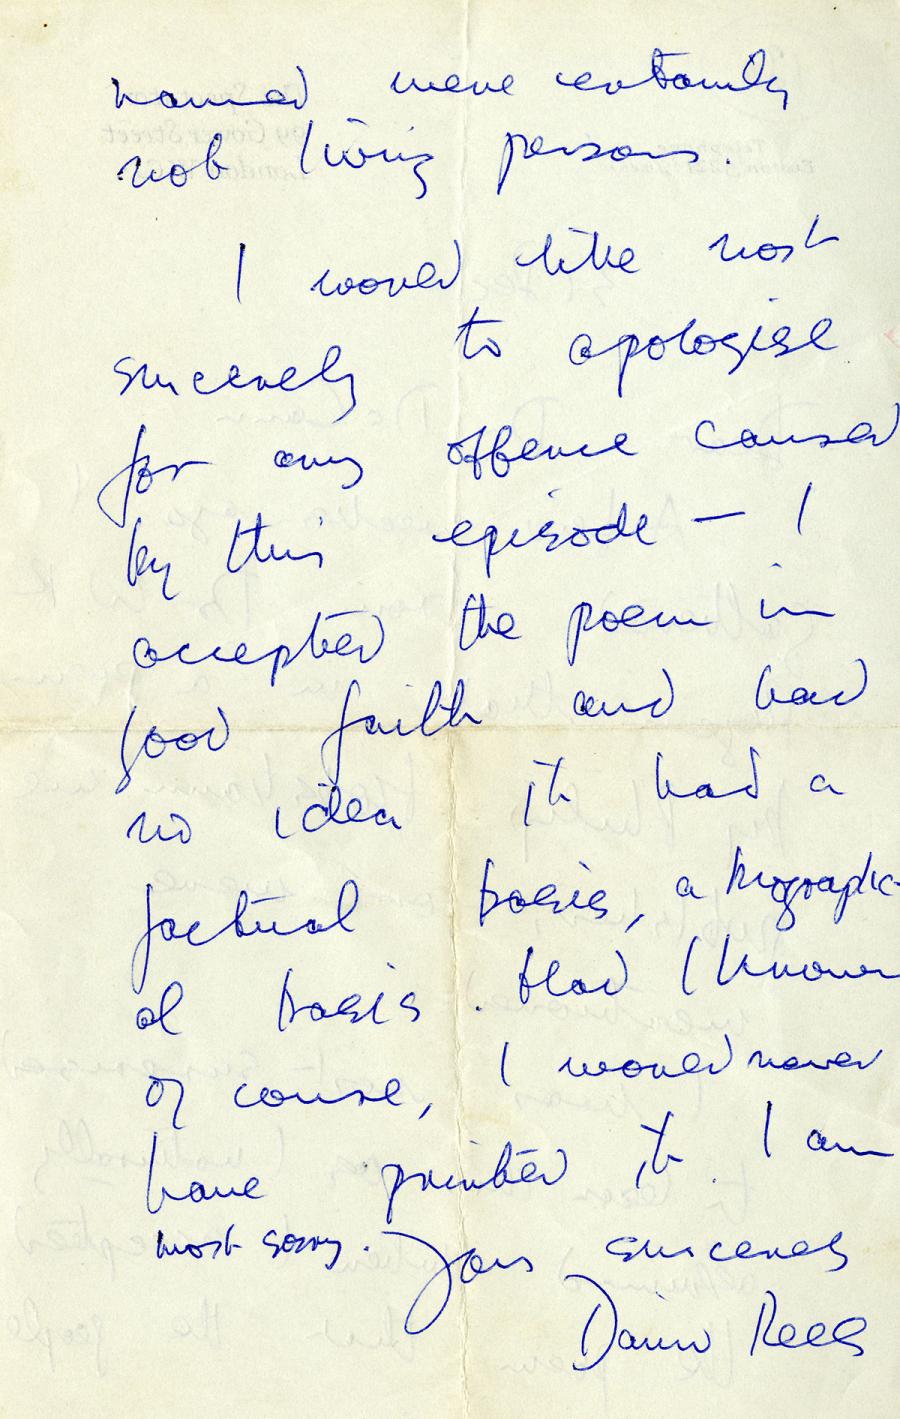 named were certainly
not living persons.
I would like most
sincerely to apologise
for any offence caused
by this episode – I
accepted the poem in
good faith and had
no idea it had a
factual basis, a biographic-
al basis. Had I known
of course, I would never
have printed it. I am
most sorry. Yours sincerely
David Rees